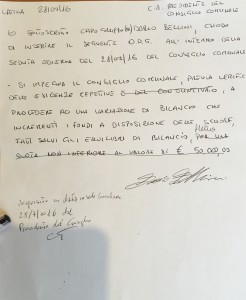 LATINA 28/07/16 C.A. PRESIDENTE DEL
CONSIGLIO COMUNALE
IO SOTTOSCRITTO CAPOGRUPPO DARIO BELLINI, CHIEDO
DI INSERIRE IL SEGUENTE O.D.G. ALL'INTERNO DELLA
SEDUTA ODIERNA DEL 28/07/16 DEL CONSIGLIO COMUNALE
- SI IMPEGNA IL CONSIGLIO COMUNALE, PREVIA VERIFICA
DELLE EVIDENZE CEPETIVE E DEL CONSUNTIVATO, A
PROCEDERE AD UNA VARIAZIONE DI BILANCIO CHE
INCREMENTI I FONDI A DISPOSIZIONE DELLE SCUOLE,
FATTI SALVI GLI EQUILIBRI DI BILANCIO, PER UNA
QUOTA NON INFERIORE AL VALORE DI € 50.000,00
28/7/2016 dal
Presidente del Consiglio